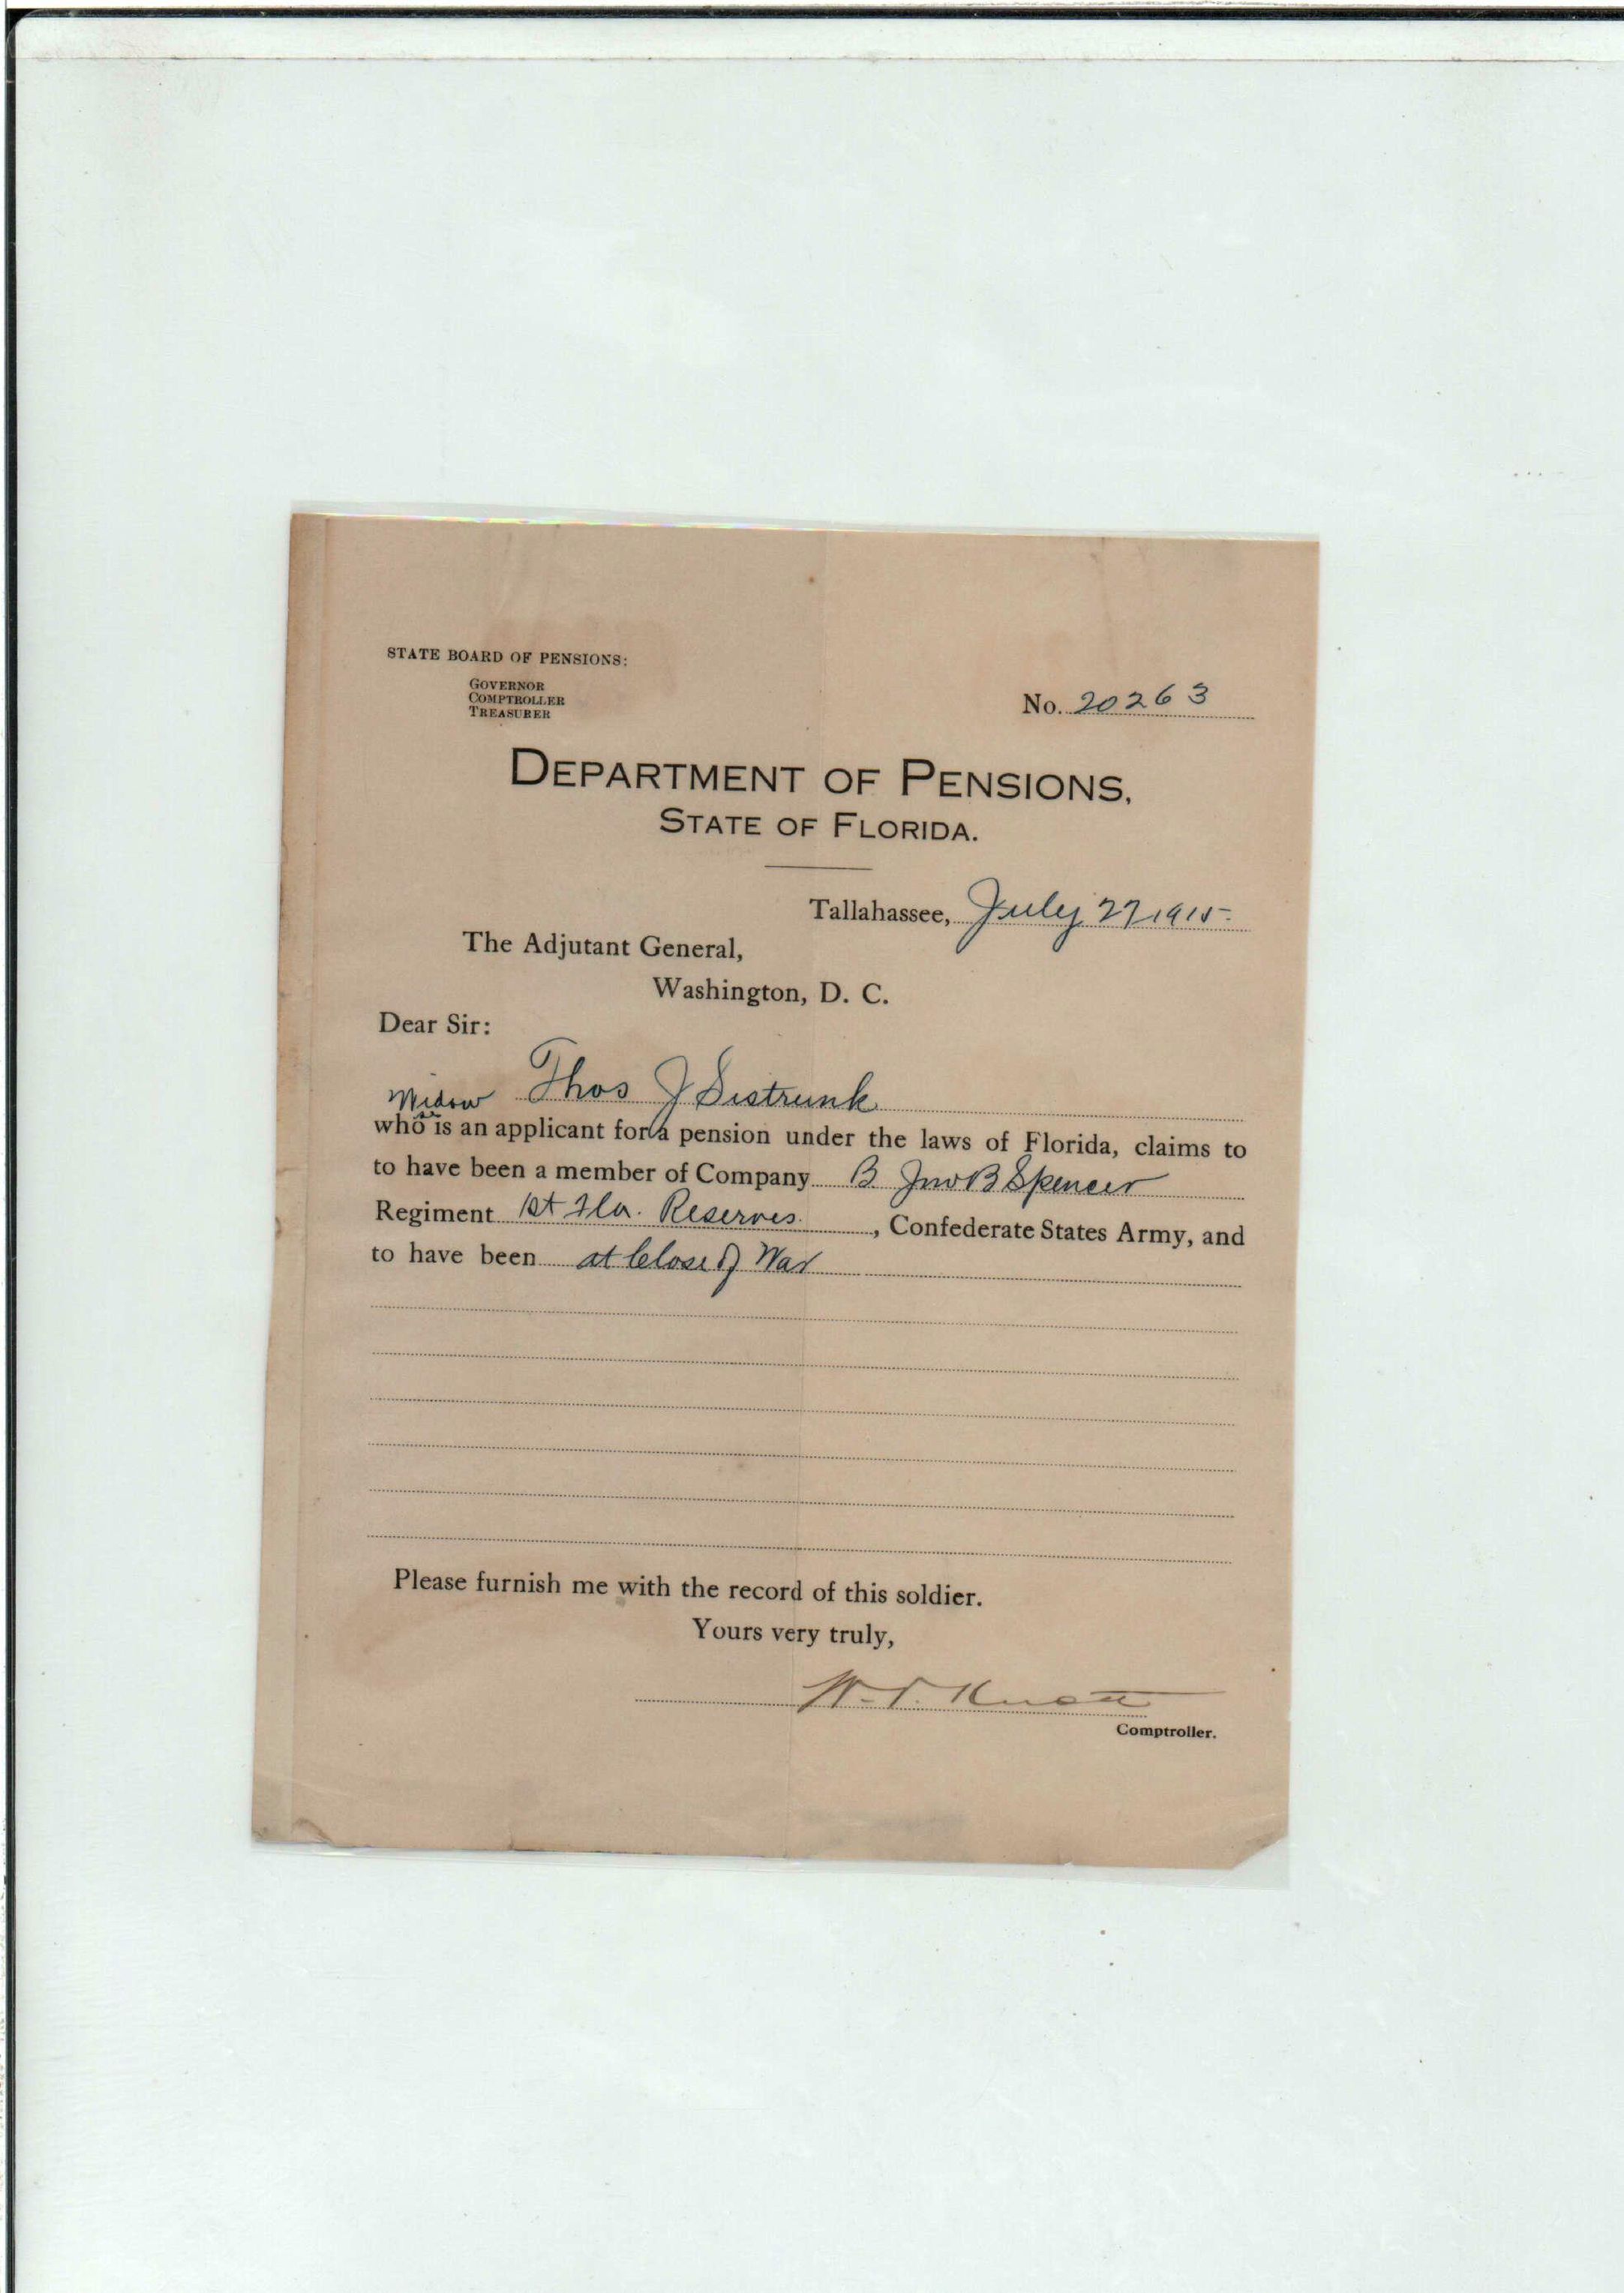 STATE BOARD OF PENSIONS:
GOVERNOR
COMPTROLLER
TREASURER
No. 20263
DEPARTMENT OF PENSIONS,
STATE OF FLORIDA.
Tallahassee, July 27 1915.
The Adjutant General,
Washington, D. C.
Dear Sir:
Widow Thos J Sistrunk
who is an applicant for a pension under the laws of Florida, claims to
to have been a member of Company B. Jno B Spencer
Regiment 1st Fla. Reserves, Confederate States Army, and
to have been at Close of War
Please furnish me with the record of this soldier.
Yours very truly,
W. V. Knott
Comptroller.